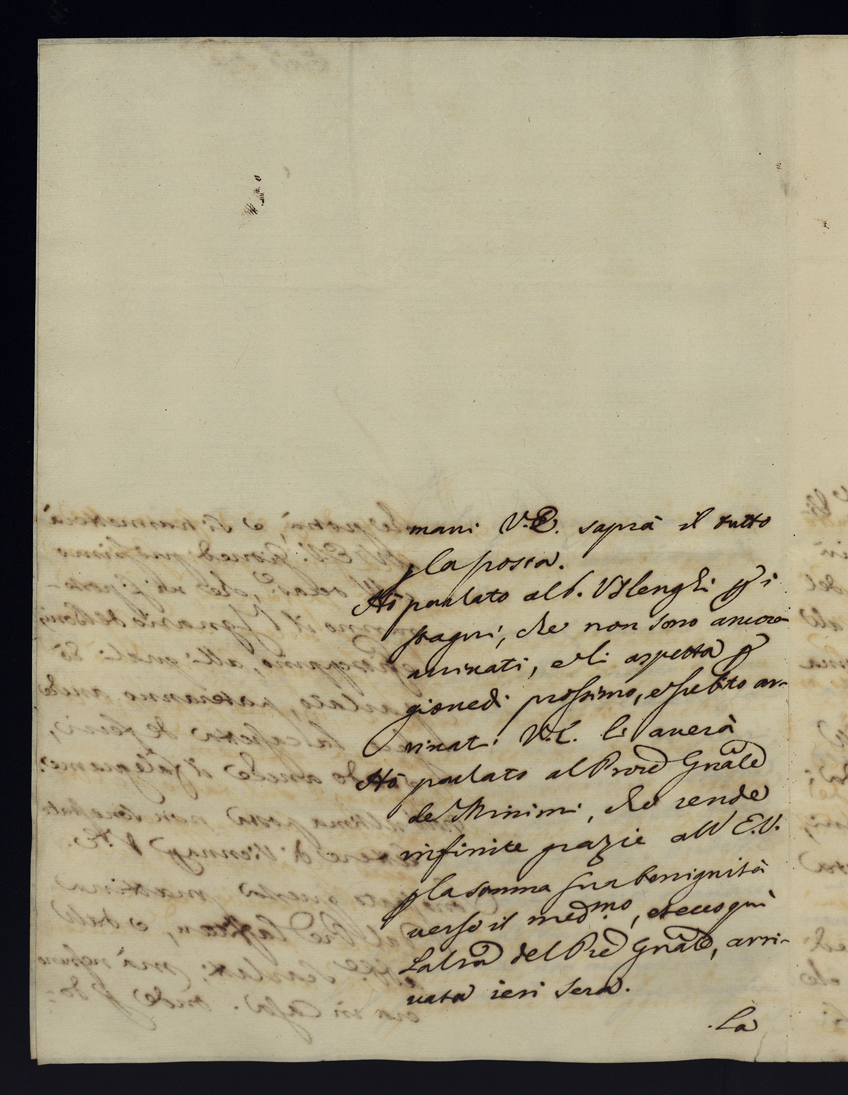 mani V.E. saprà il tutto
p la posta.
Hò parlato al S. Uslenghi p i
fragni, che non sono ancora
arrivati, e li aspetta p
giovedì prossimo, e subito ar-
rivati V.E. li averà
Hò parlato al Prore Gnale
de Minimi, che rende
infinite grazie all' E.V.
p la somma sua benignità
verso il medmo, et ecco qui
La del Pre Gnale, arri-
vata ieri sera.
La